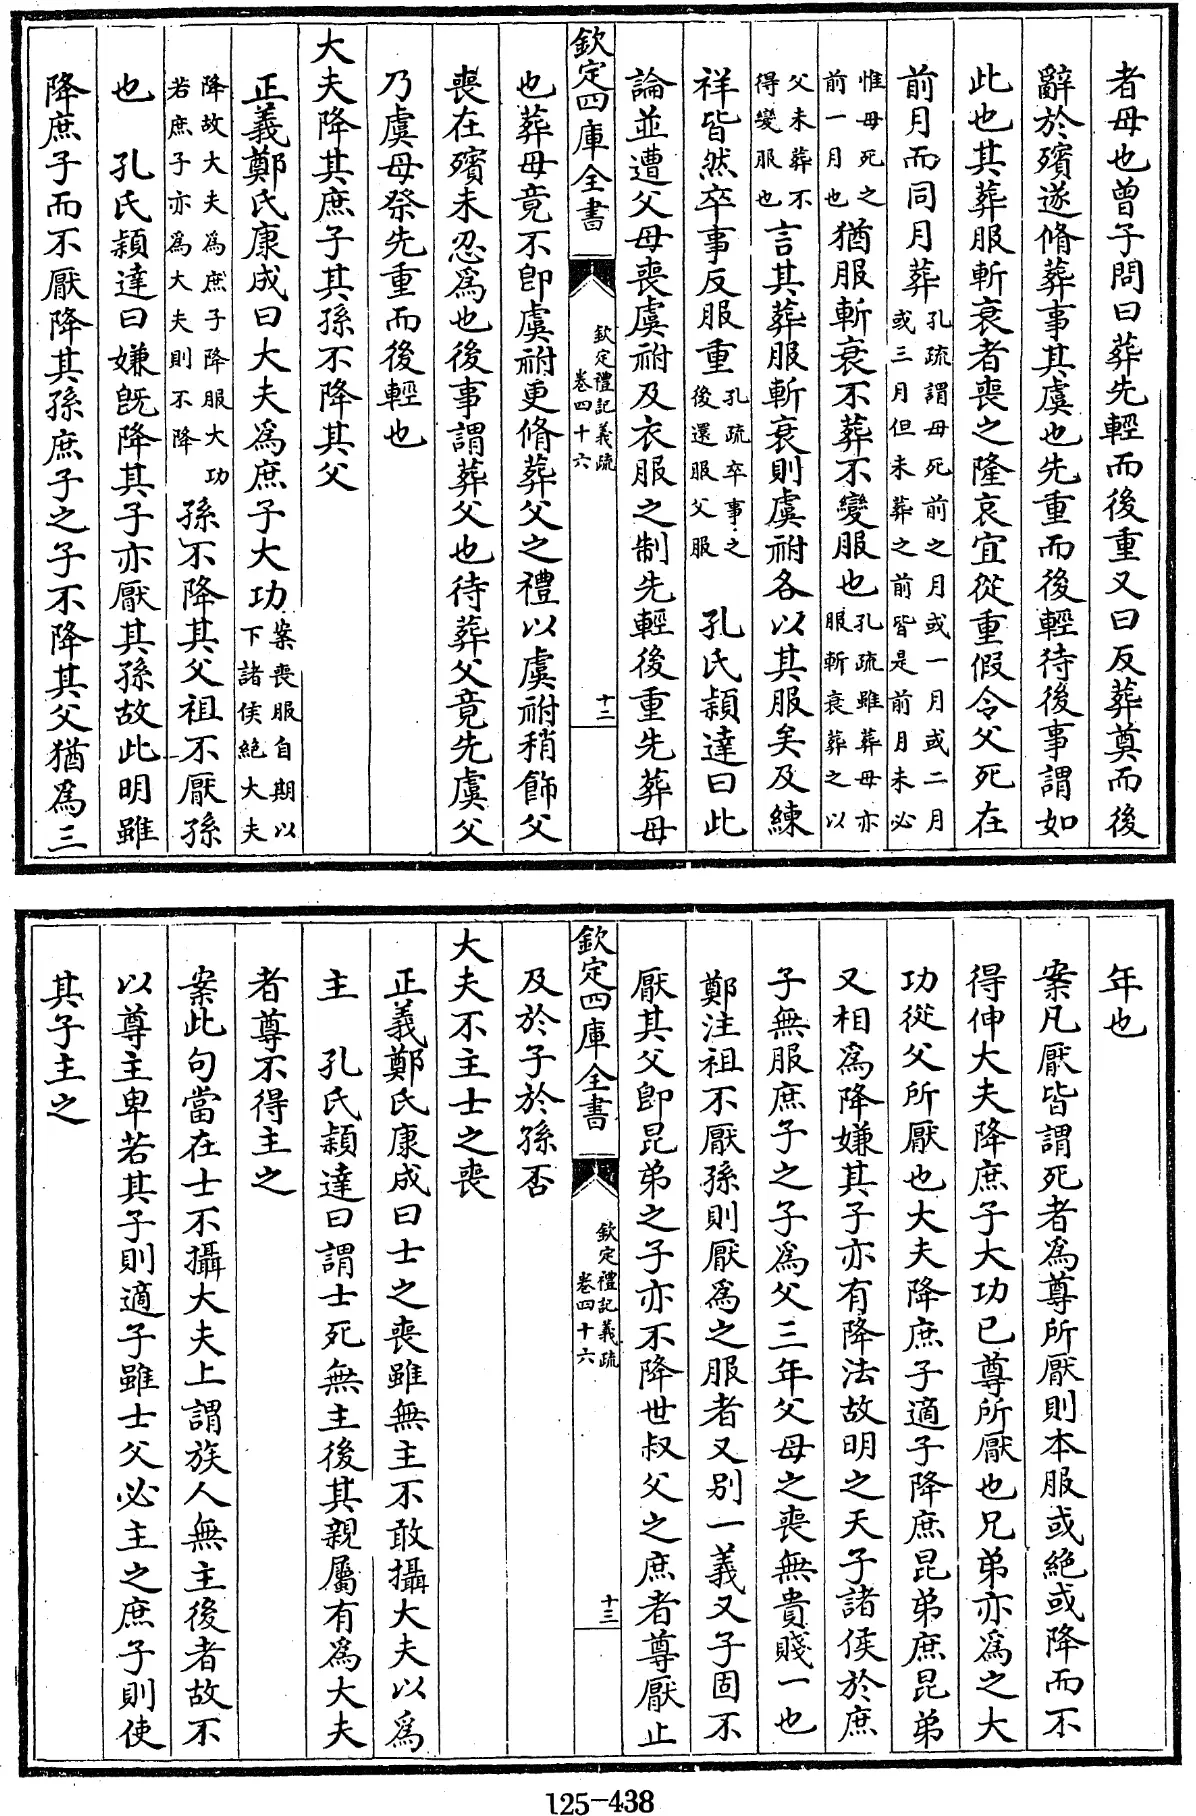 者母也曾子問曰葬先輕而後重又曰反葬奠而後
辭於殯遂脩葬事其虞也先重而後輕待後事謂如
此也其葬服斬衰者喪之隆哀宜從重假令父死在
前月而同月葬孔疏謂母死前之月或一月或二月
或三月但未葬之前皆是前月未必
惟母死之
前一月也猶服斬衰不葬不變服也孔疏雖葬母亦
服斬衰葬之以
父未葬不
得變服也言其葬服斬衰則虞祔各以其服矣及練
祥皆然卒事反服重孔疏卒事之
後還服父服 孔氏穎達曰此
論並遭父母喪虞祔及衣服之制先輕後重先葬母
欽定四庫全書
欽定禮記義疏
卷四十六
十二
也葬母竟不即虞祔更脩葬父之禮以虞祔稍飾父
喪在殯未忍為也後事謂葬父也待葬父竟先虞父
乃虞母祭先重而後輕也
大夫降其庶子其孫不降其父
正義鄭氏康成曰大夫為庶子大功案喪服自期以
下諸侯絶大夫
降故大夫為庶子降服大功
若庶子亦為大夫則不降 孫不降其父祖不厭孫
也 孔氏穎達曰嫌既降其子亦厭其孫故此明雖
降庶子而不厭降其孫庶子之子不降其父猶為三
年也
案凡厭皆謂死者為尊所厭則本服或絶或降而不
得伸大夫降庶子大功已尊所厭也兄弟亦為之大
功從父所厭也大夫降庶子適子降庶昆弟庶昆弟
又相為降嫌其子亦有降法故明之天子諸侯於庶
子無服庶子之子為父三年父母之喪無貴賤一也
鄭注祖不厭孫則厭為之服者又别一義又子固不
厭其父即昆弟之子亦不降世叔父之庶者尊厭止
欽定四庫全書
欽定禮記義疏
卷四十六
十三
及於子於孫否
大夫不主士之喪
正義鄭氏康成曰士之喪雖無主不敢攝大夫以為
主 孔氏穎達曰謂士死無主後其親屬有為大夫
者尊不得主之
案此句當在士不攝大夫上謂族人無主後者故不
以尊主卑若其子則適子雖士父必主之庶子則使
其子主之
125-438